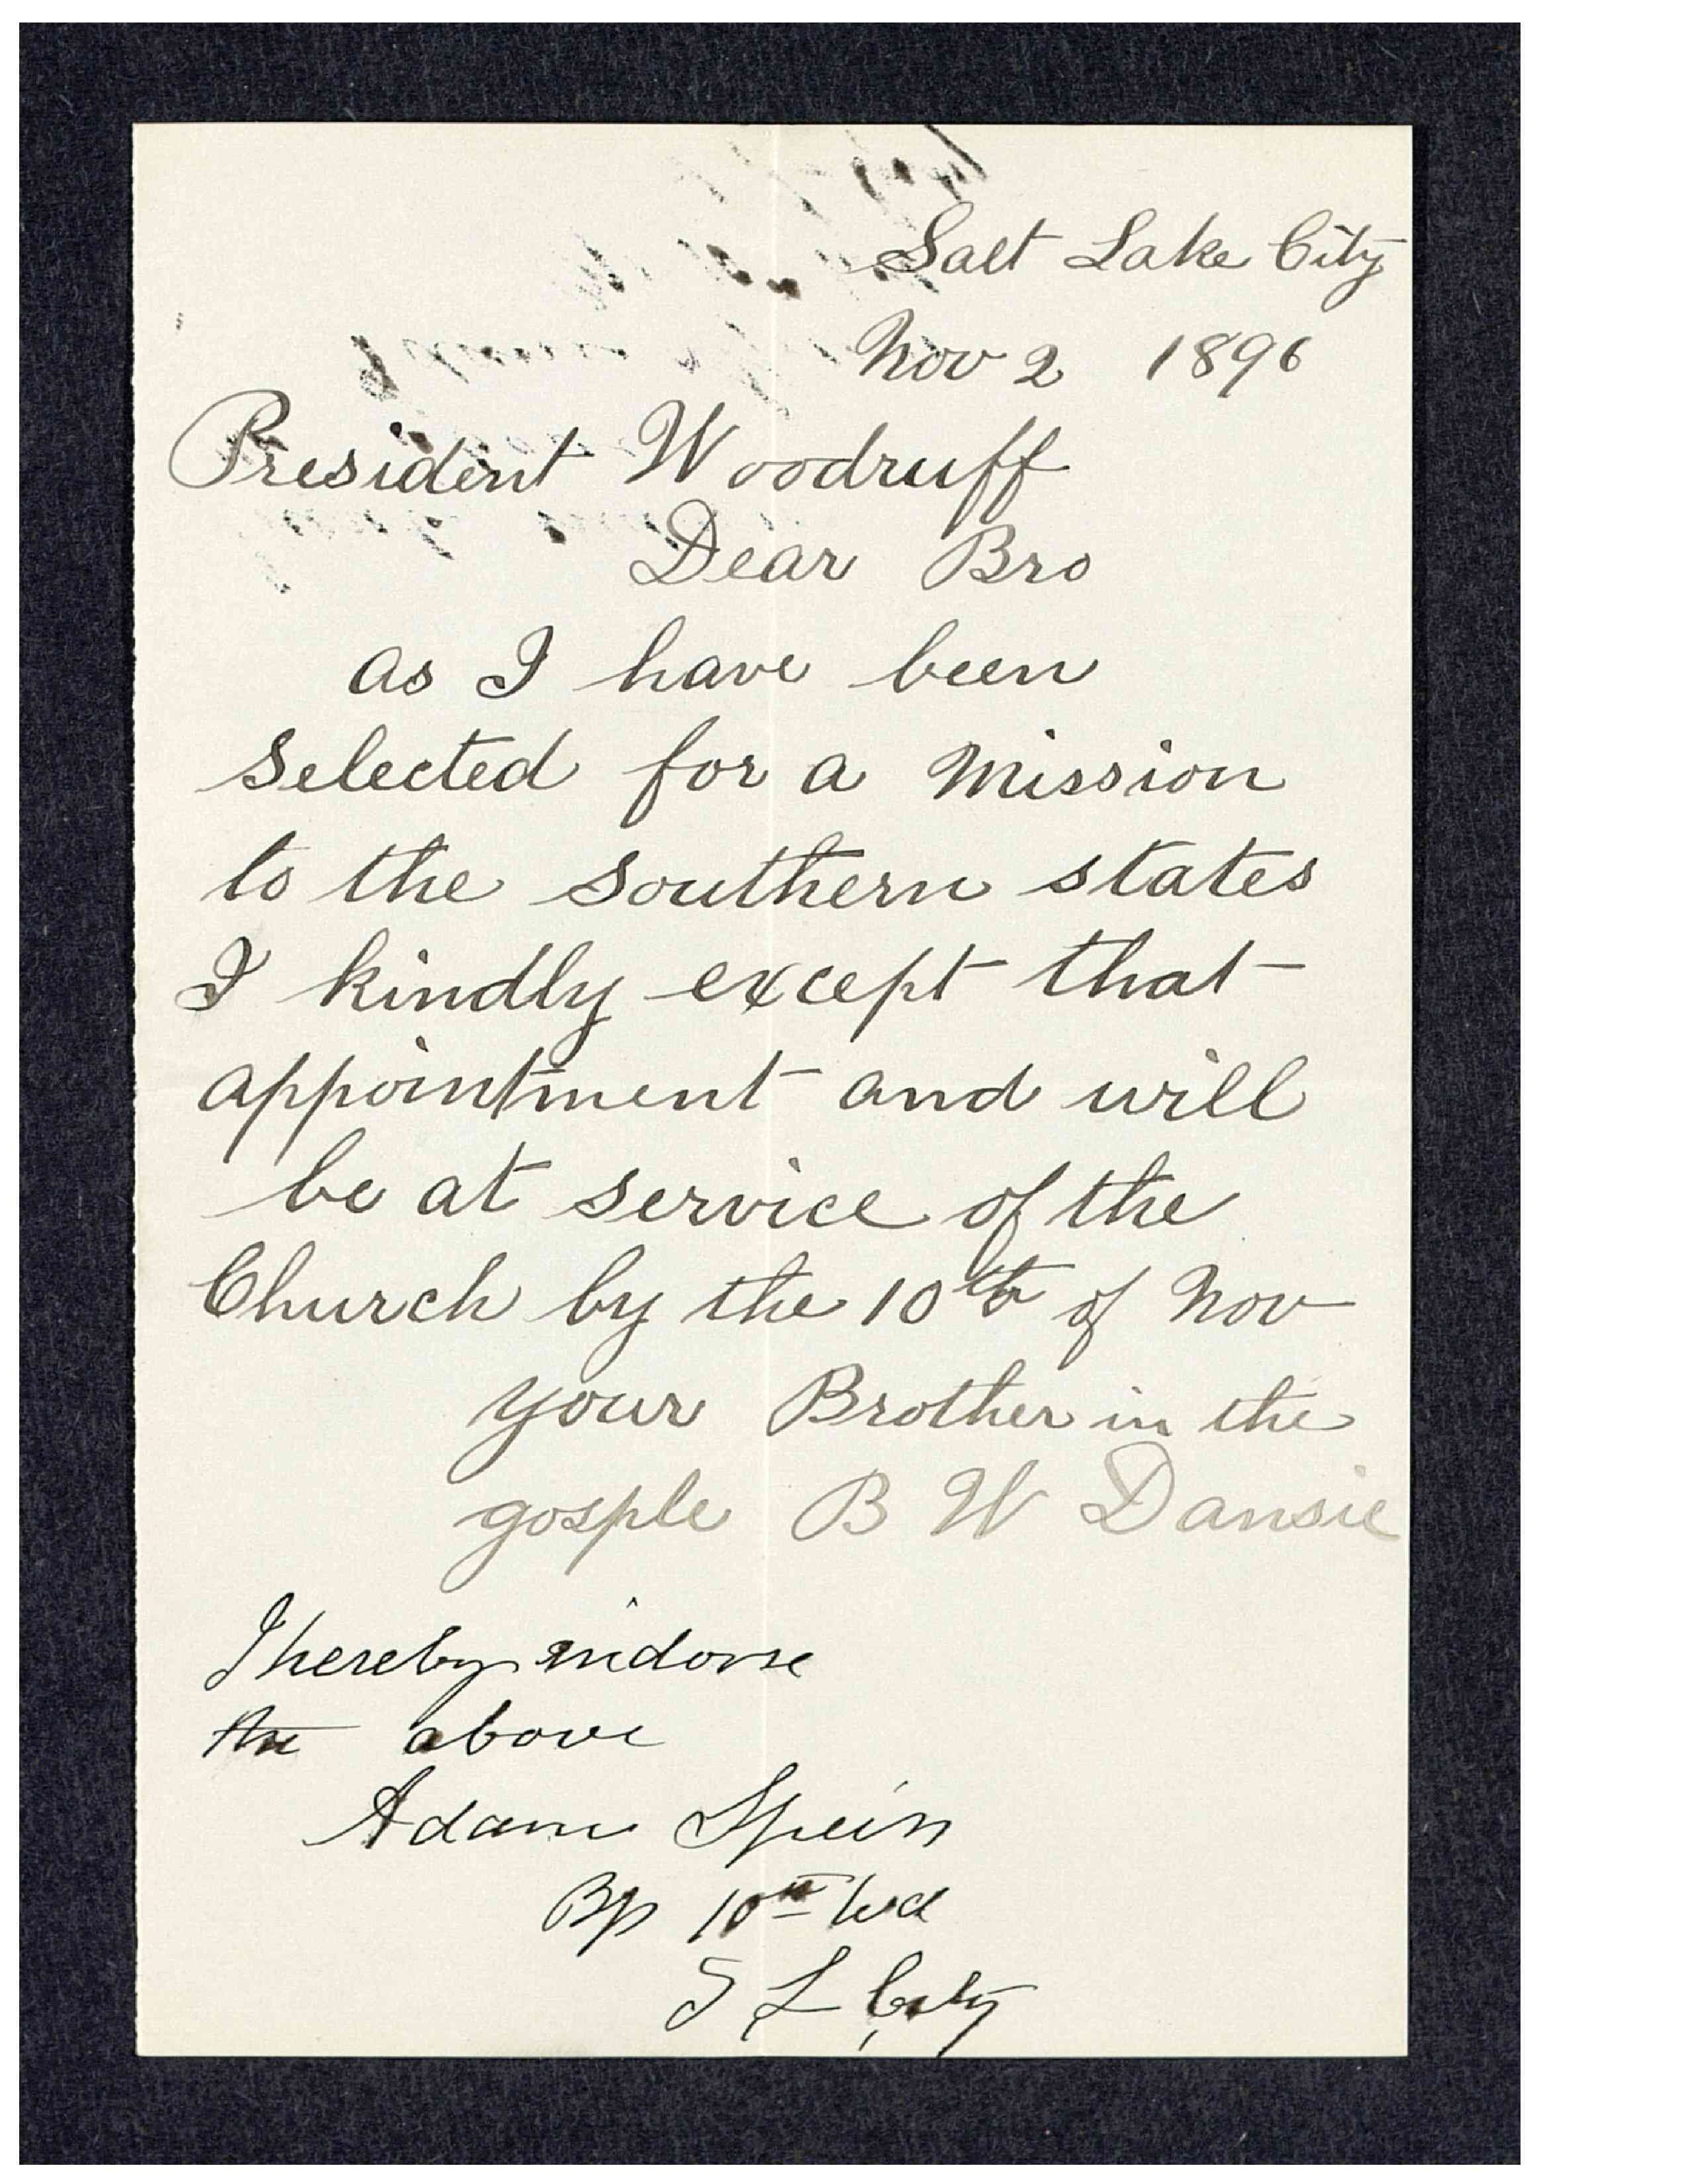 Salt Lake City
Nov 2 1896
President Woodruff
Dear Bro
as I have been
selected for a Mission
to the Southern states
I kindly except that
appointment and will
be at service of the
Church by the 10th of Nov
your Brother in the
gosple B W Dansie
I hereby indorse
the above
Adam Speirs
Bp 10th Wd
S L City